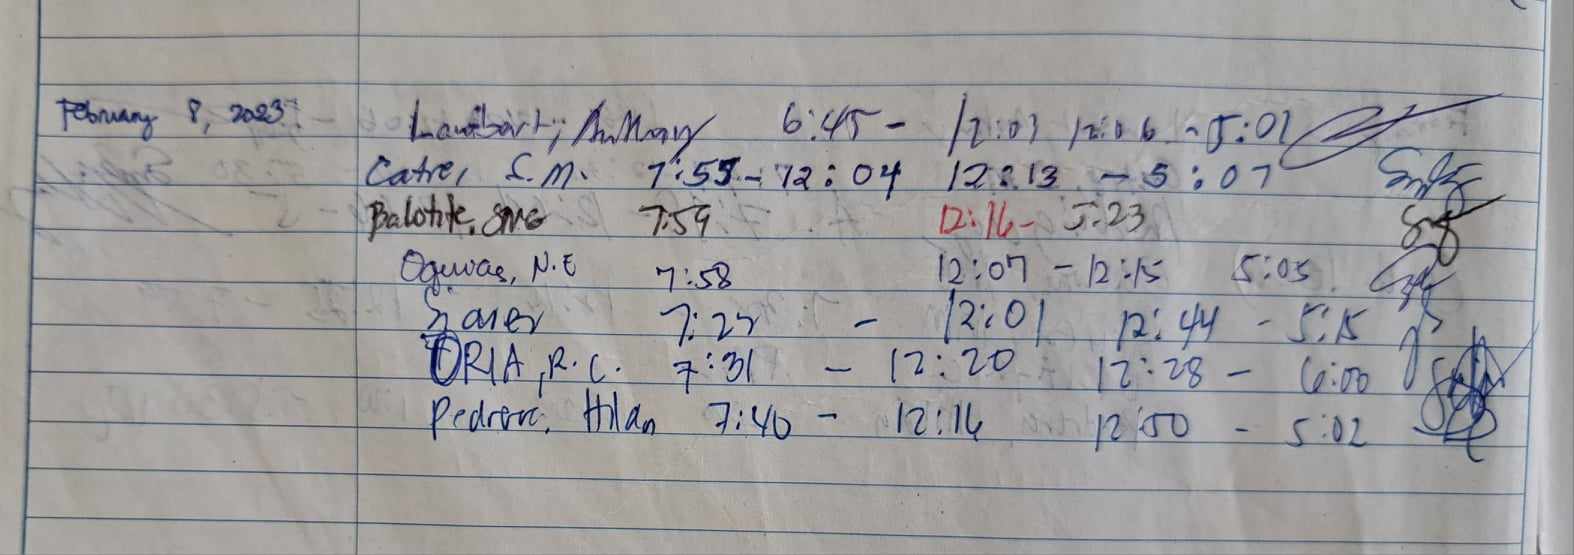 February 8, 2023 Lambert, Anthony 6:45 - 12:03 12:06 - 5:01
Catre, S.M. 7:55 - 12:04 12:13 - 5:07
Balotite, SMG 7:59 12:16 - 5:23
N.E 7:58 12:07 - 12:15 5:05
7:22 - 12:01 12:44 - 5:15
ORIA, R.C. 7:31 - 12:20 12:28 - 6:00
Hilda 7:40 - 12:16 12:50 - 5:02